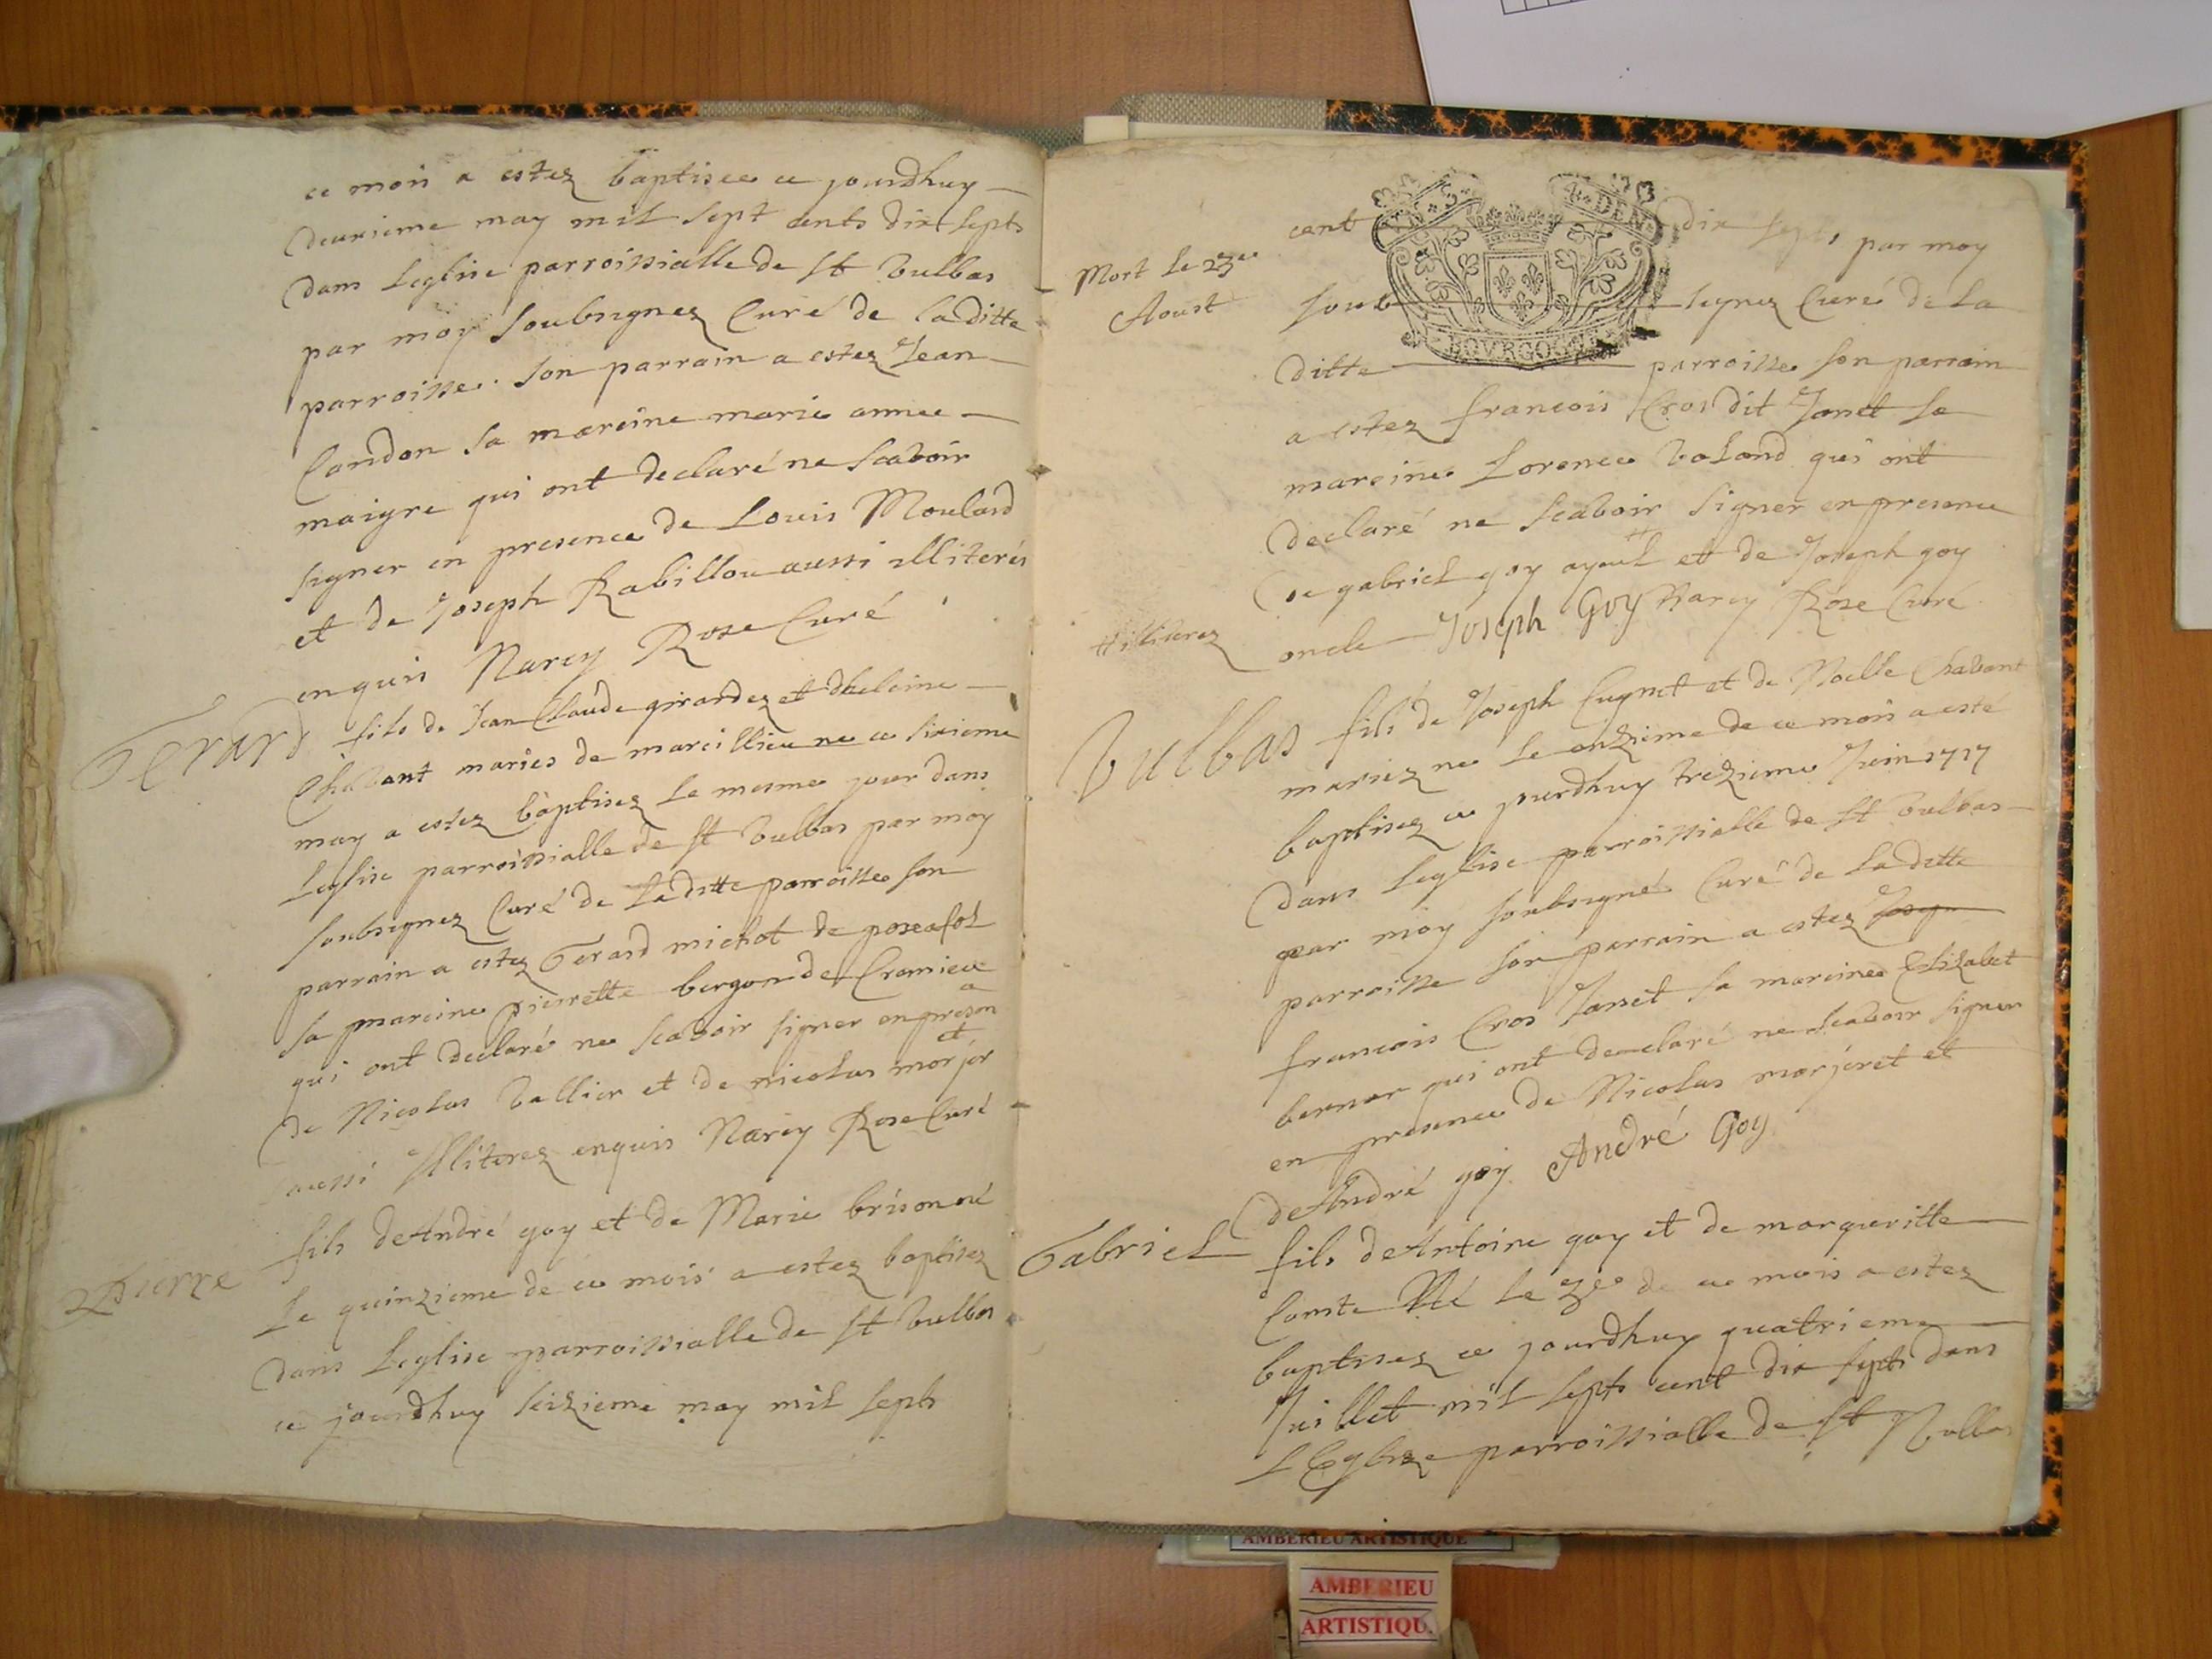 ce mois a estez baptisee ce jourdhuy
deuxieme may mil sept cents dix septs
dans Leglise parroissialle de St Vulbas
par moy soubsignez Curé de laditte
parroisse. son parrain a estez Jean
Candon sa mareine marie annee
maigre qui ont declaré ne scavoir
signer en presence de Louis Moulard
et de Joseph Rabillou aussi illiterés
enquis Narcy Rose Curé
Gerard fils de Jean Claude girardez et dheleine
Chavant mariés de marcillieu ne ce sixieme
may a estez baptisez le mesme jour dans
Leglise parroissialle de St Vulbas par moy
soubsignez Curé de Laditte parroisse son
parrain a estez Gerard michot de posafol
sa mareine pierrette bergon de Cremieu
qui ont declaré ne scavoir signer en presen
a
de Nicolas Vallier et de nicolas morjer
et
aussi Illiterez enquis Narcy Rose Curé
Pierre fils deAndré goy et de Marie brison né
Le quinzieme de ce mois a estez baptisez
dans Leglise parroissialle de St Vulbas
ce jourdhuy seizieme may mil septs
cent dix septs par moy
Mort le 23e
Aoust
soub signez Curé de La
BOVRGOGNE
ditte parroisse son parrain
a estez francois Cros dit Janet sa
mareine Lorence Valand qui ont
declaré ne scavoir signer en presence
de gabriel goy ayeul # et de Joseph goy
# illiterez
oncle Joseph Goy Narcy Rose Curé
Vulbas fils de Joseph Cugnet et de Noelle Chavant
mariez ne le onzieme de ce mois a esté
baptisez ce jourdhuy trezieme Juin 1717
dans Leglise parroissialle de St Vulbas
par moy soubsigné Curé de Laditte
parroisse son parrain a estez
francois Cros Janet sa mareine Elizabet
bernar qui ont declaré ne scavoir signer
en presence de Nicolas morjeret et
deAndré goy André Goy
Gabriel fils deAntoine goy et de margueritte
Comte Né le 3e de ce mois a estez
baptisez ce jourdhuy quatrieme
Juillet mil septs cent dix septs dans
LEglize parroissialle de St Vulbas
AMBERIEU ARTISTIQUE
AMBERIEU
ARTISTIQU